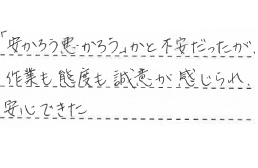 「安かろう悪かろう」かと不安だったが、
作業も態度も誠意が感じられ、
安心できた